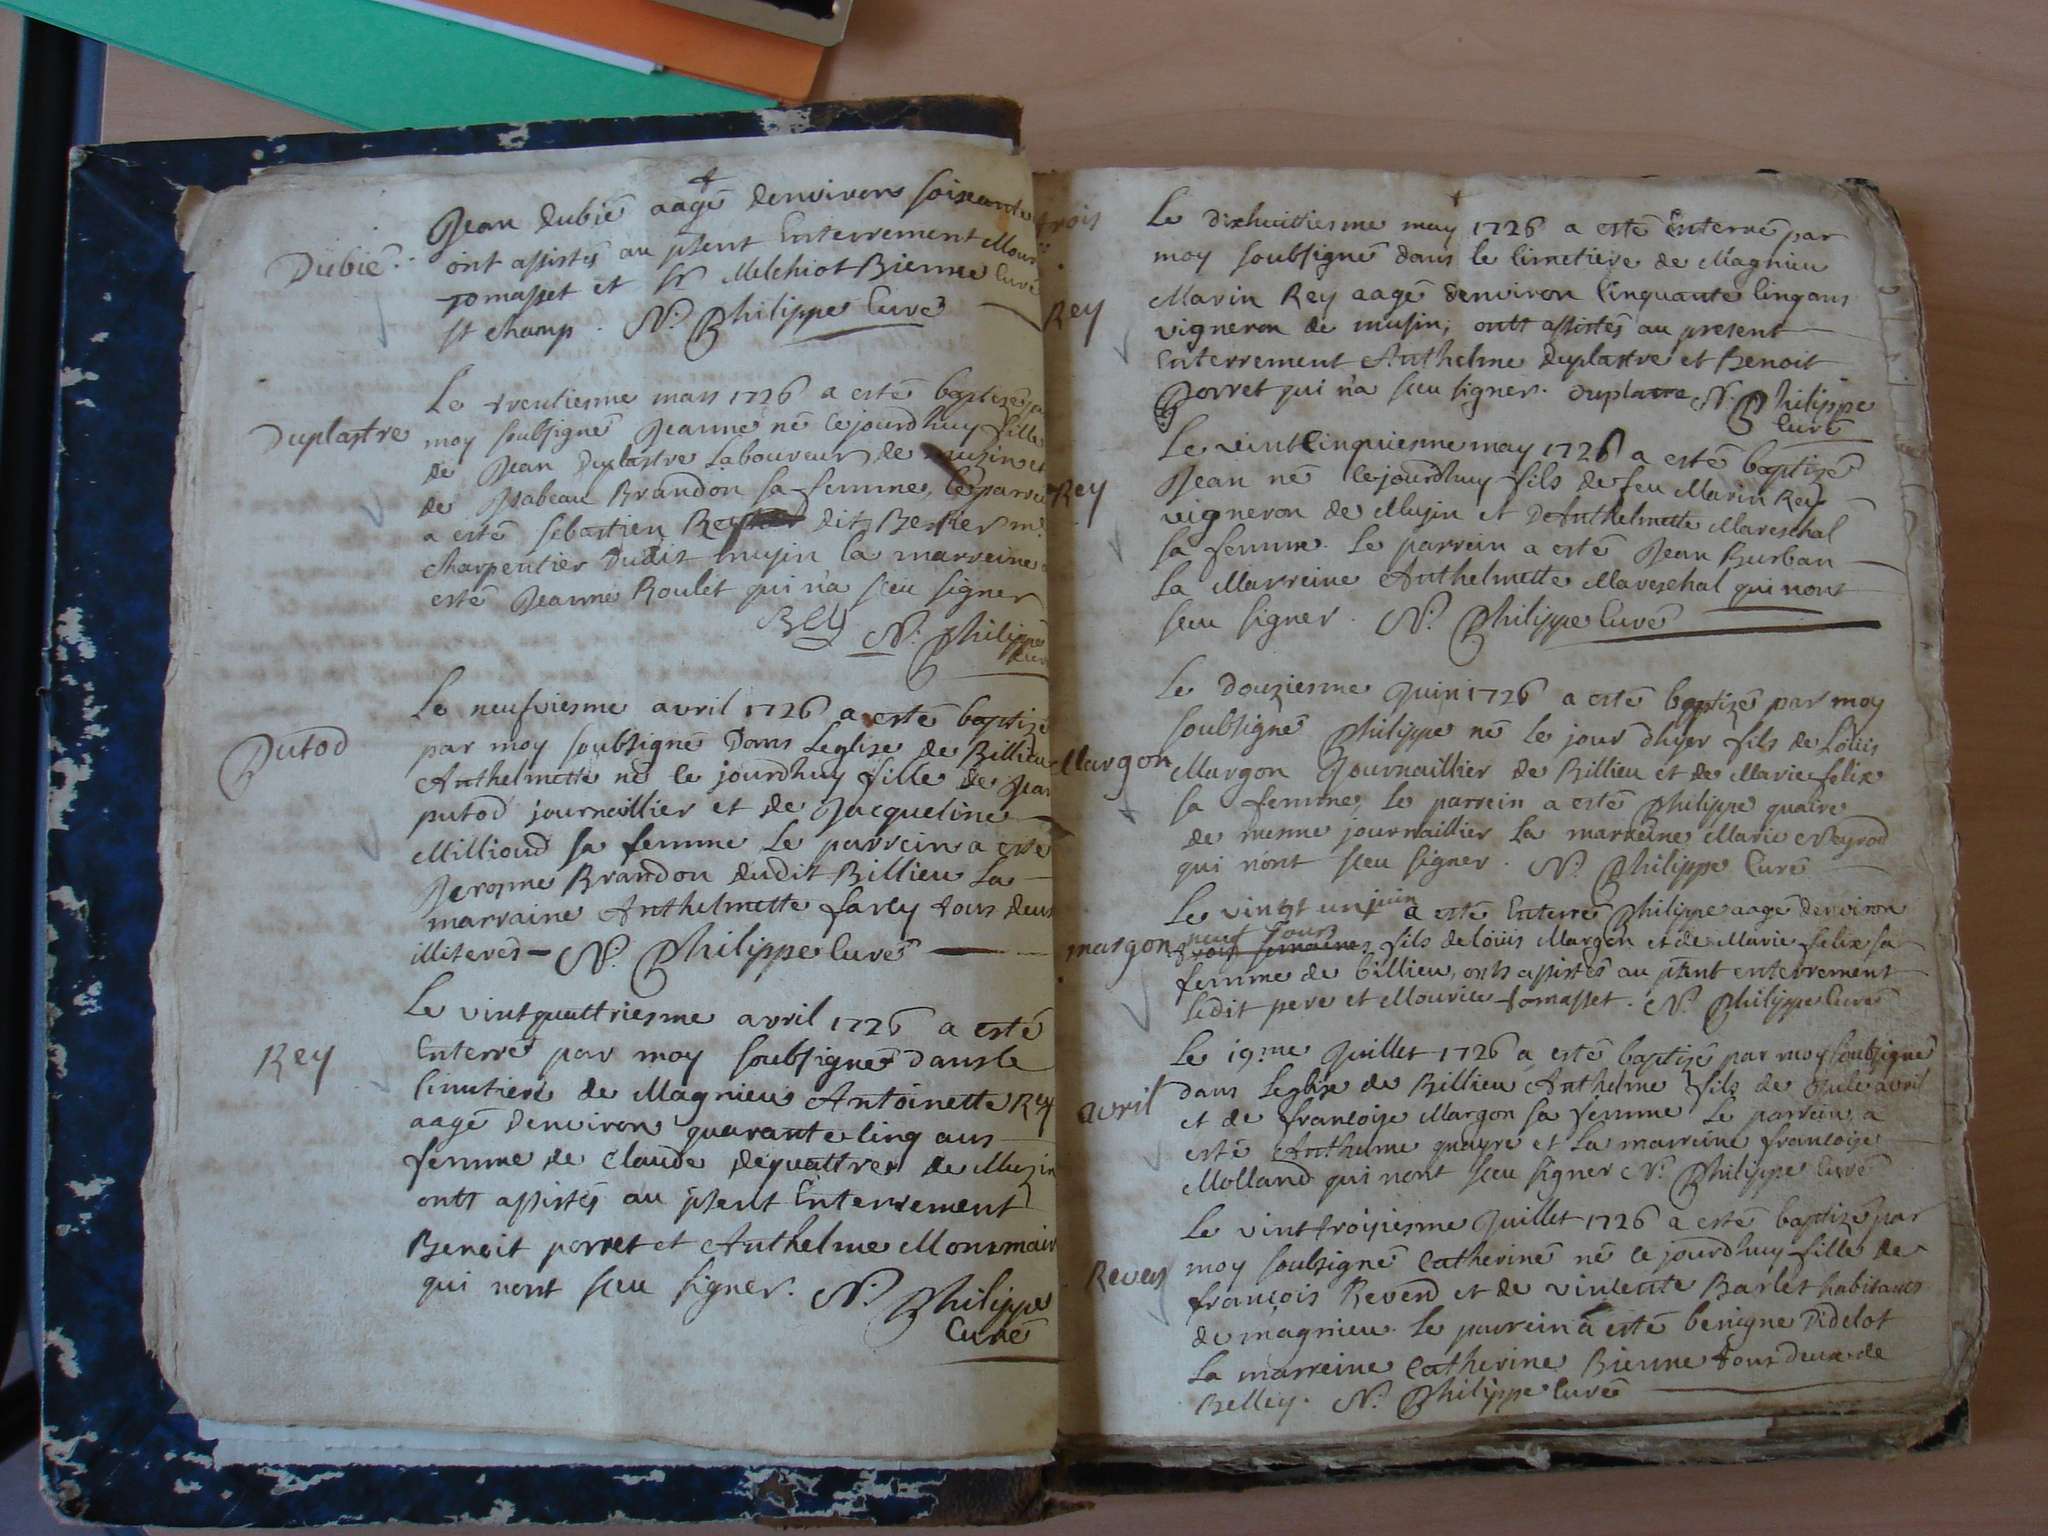 Dubié
Jean Dubié aagé denviron soixante trois
ont assistés au psent Enterrement
Tomasset et Sr Melchiot Bienne Curé
st champ. N. Philippe Curé
Duplastre
Le trentiesme mars 1726 a esté baptizé
moy soubsigné Jeanne né Cejourdhuy fille
de Jean Duplastre Laboureur de musin et
de Isabeau Brandon sa femme, le parrein
a esté Sebastien Rey dit Berlier
charpentier Dudit musin la marreine
esté Jeanne Roulet qui na sceu signer
Rey N. Philippe
Curé
Putod
Le neufviesme avril 1726 a esté baptizé
par moy soubsigné Dans Leglise de Billieu
Anthelmette né le jourdhuy fille de Jean
putod journaillier et de Jacqueline
Millioud sa femme Le parrein a esté
Jerosme Brandon dudit Billieu La
marraine Anthelmette farcy tous deux
illiteres - N. Philippe Curé
Rey
Le vintquattriesme avril 1726 a esté
Enterré par moy soubsigné dans le
Cimetiere de Magnieu Antoinette Rey
aagé Denviron quarante Cinq ans
femme de Claude dequattres de Muzin
ontt assistés au psent Enterrement
Benoit porret et Anthelme Monmair
qui nont sceu signer. N. Philippe
Curé
Rey
Le Dixhuittiesme may 1726 a esté Enterré par
moy soubsigné dans le Cimetiere de Magnieu
Marin Rey aagé denviron Cinquante Cinq ans
vigneron de musin, ontt assistés au present
Enterrement Anthelme Duplastre et Benoit
Porret qui na sceu signer. Duplatre N. Philippe
Curé
Rey
Le vintCinquiesme may 1726 a esté baptizé
Jean né Cejourdhuy fils de feu Marin Rey
vigneron de Musin et DAnthelmette Mareschal
sa femme. Le parrein a esté Jean Burban
La Marreine Anthelmette Mareschal qui nont
sceu signer. N. Philippe Curé
Margon
Le Douziesme Juin 1726 a esté baptizé par moy
soubsigné Philippe né le jour dhyer fils de Louis
Margon Journaillier de Billieu et de Marie felix
sa femme, Le parrein a esté Philippe quaire
de mesme journaillier La marreine Marie Neyrod
qui nont sceu signer. N. Philippe Curé
margon
Le vingt un juin a esté Enterré Philippe aagé denviron
neuf Jours
trois semaines fils de Louis Margon et de Marie felix sa
femme de billieu, onts assistés au psent enterrement
Ledit pere et Mourice tomasset. N. Philippe Curé
avril
Le 19.me Juillet 1726 a esté baptizé par moy soubsigné
dans Leglise de Billieu Anthelme fils de Jule avril
et de francoise Margon sa femme Le parrein a
esté Anthelme quayre et La marreine francoise
Molland qui nont sceu signer N. Philippe Curé
Revend
Le vint troisiesme Juillet 1726 a esté baptizé par
moy soubsigné Catherine né ce jourdhuy fille de
françois Revend et de vincente Barlet habitants
de magnieu. Le parrein a esté benigne Didelot
La marreine Catherine Bienne tous deux de
Belley. N. Philippe Curé